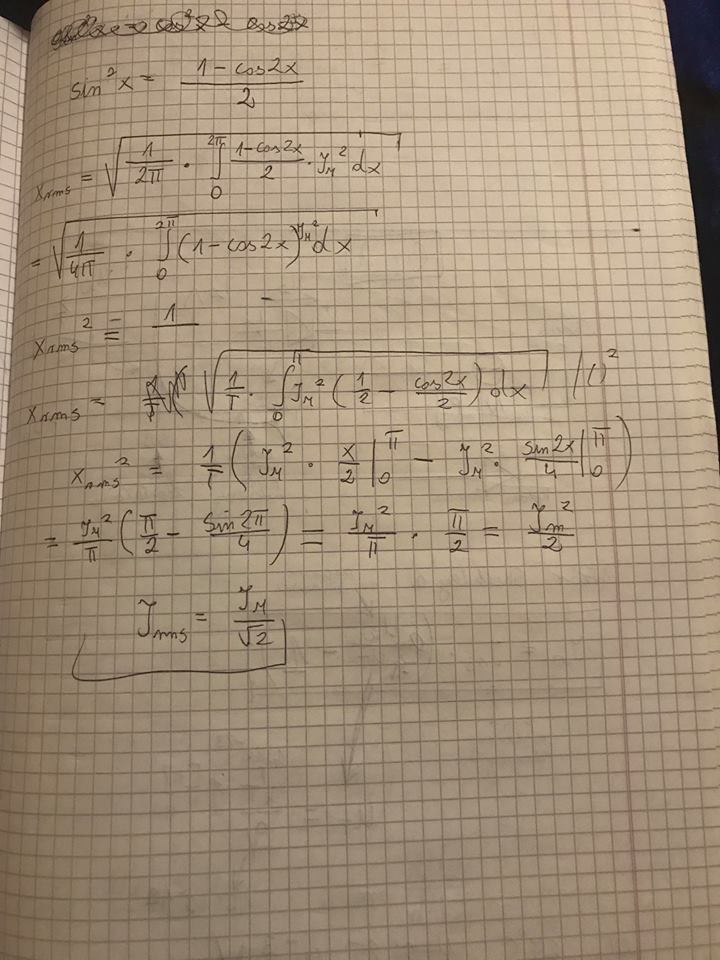 sin²x = (1 - cos2x)/2
x_rms = √(1/2π · ∫₀^2π (1-cos2x)/2 · J_M² dx)
= √(1/4π · ∫₀^2π (1 - cos2x) J_M² dx)
x_rms² = 1/
x_rms = √(1/T · ∫₀^π J_M² (1/2 - cos2x/2) dx) /()²
x_rms² = 1/T (J_M² · x/2 |₀^π - J_M² · sin2x/4 |₀^π)
= J_M²/π (π/2 - sin2π/4) = J_M²/π · π/2 = J_m²/2
J_rms = J_M/√2